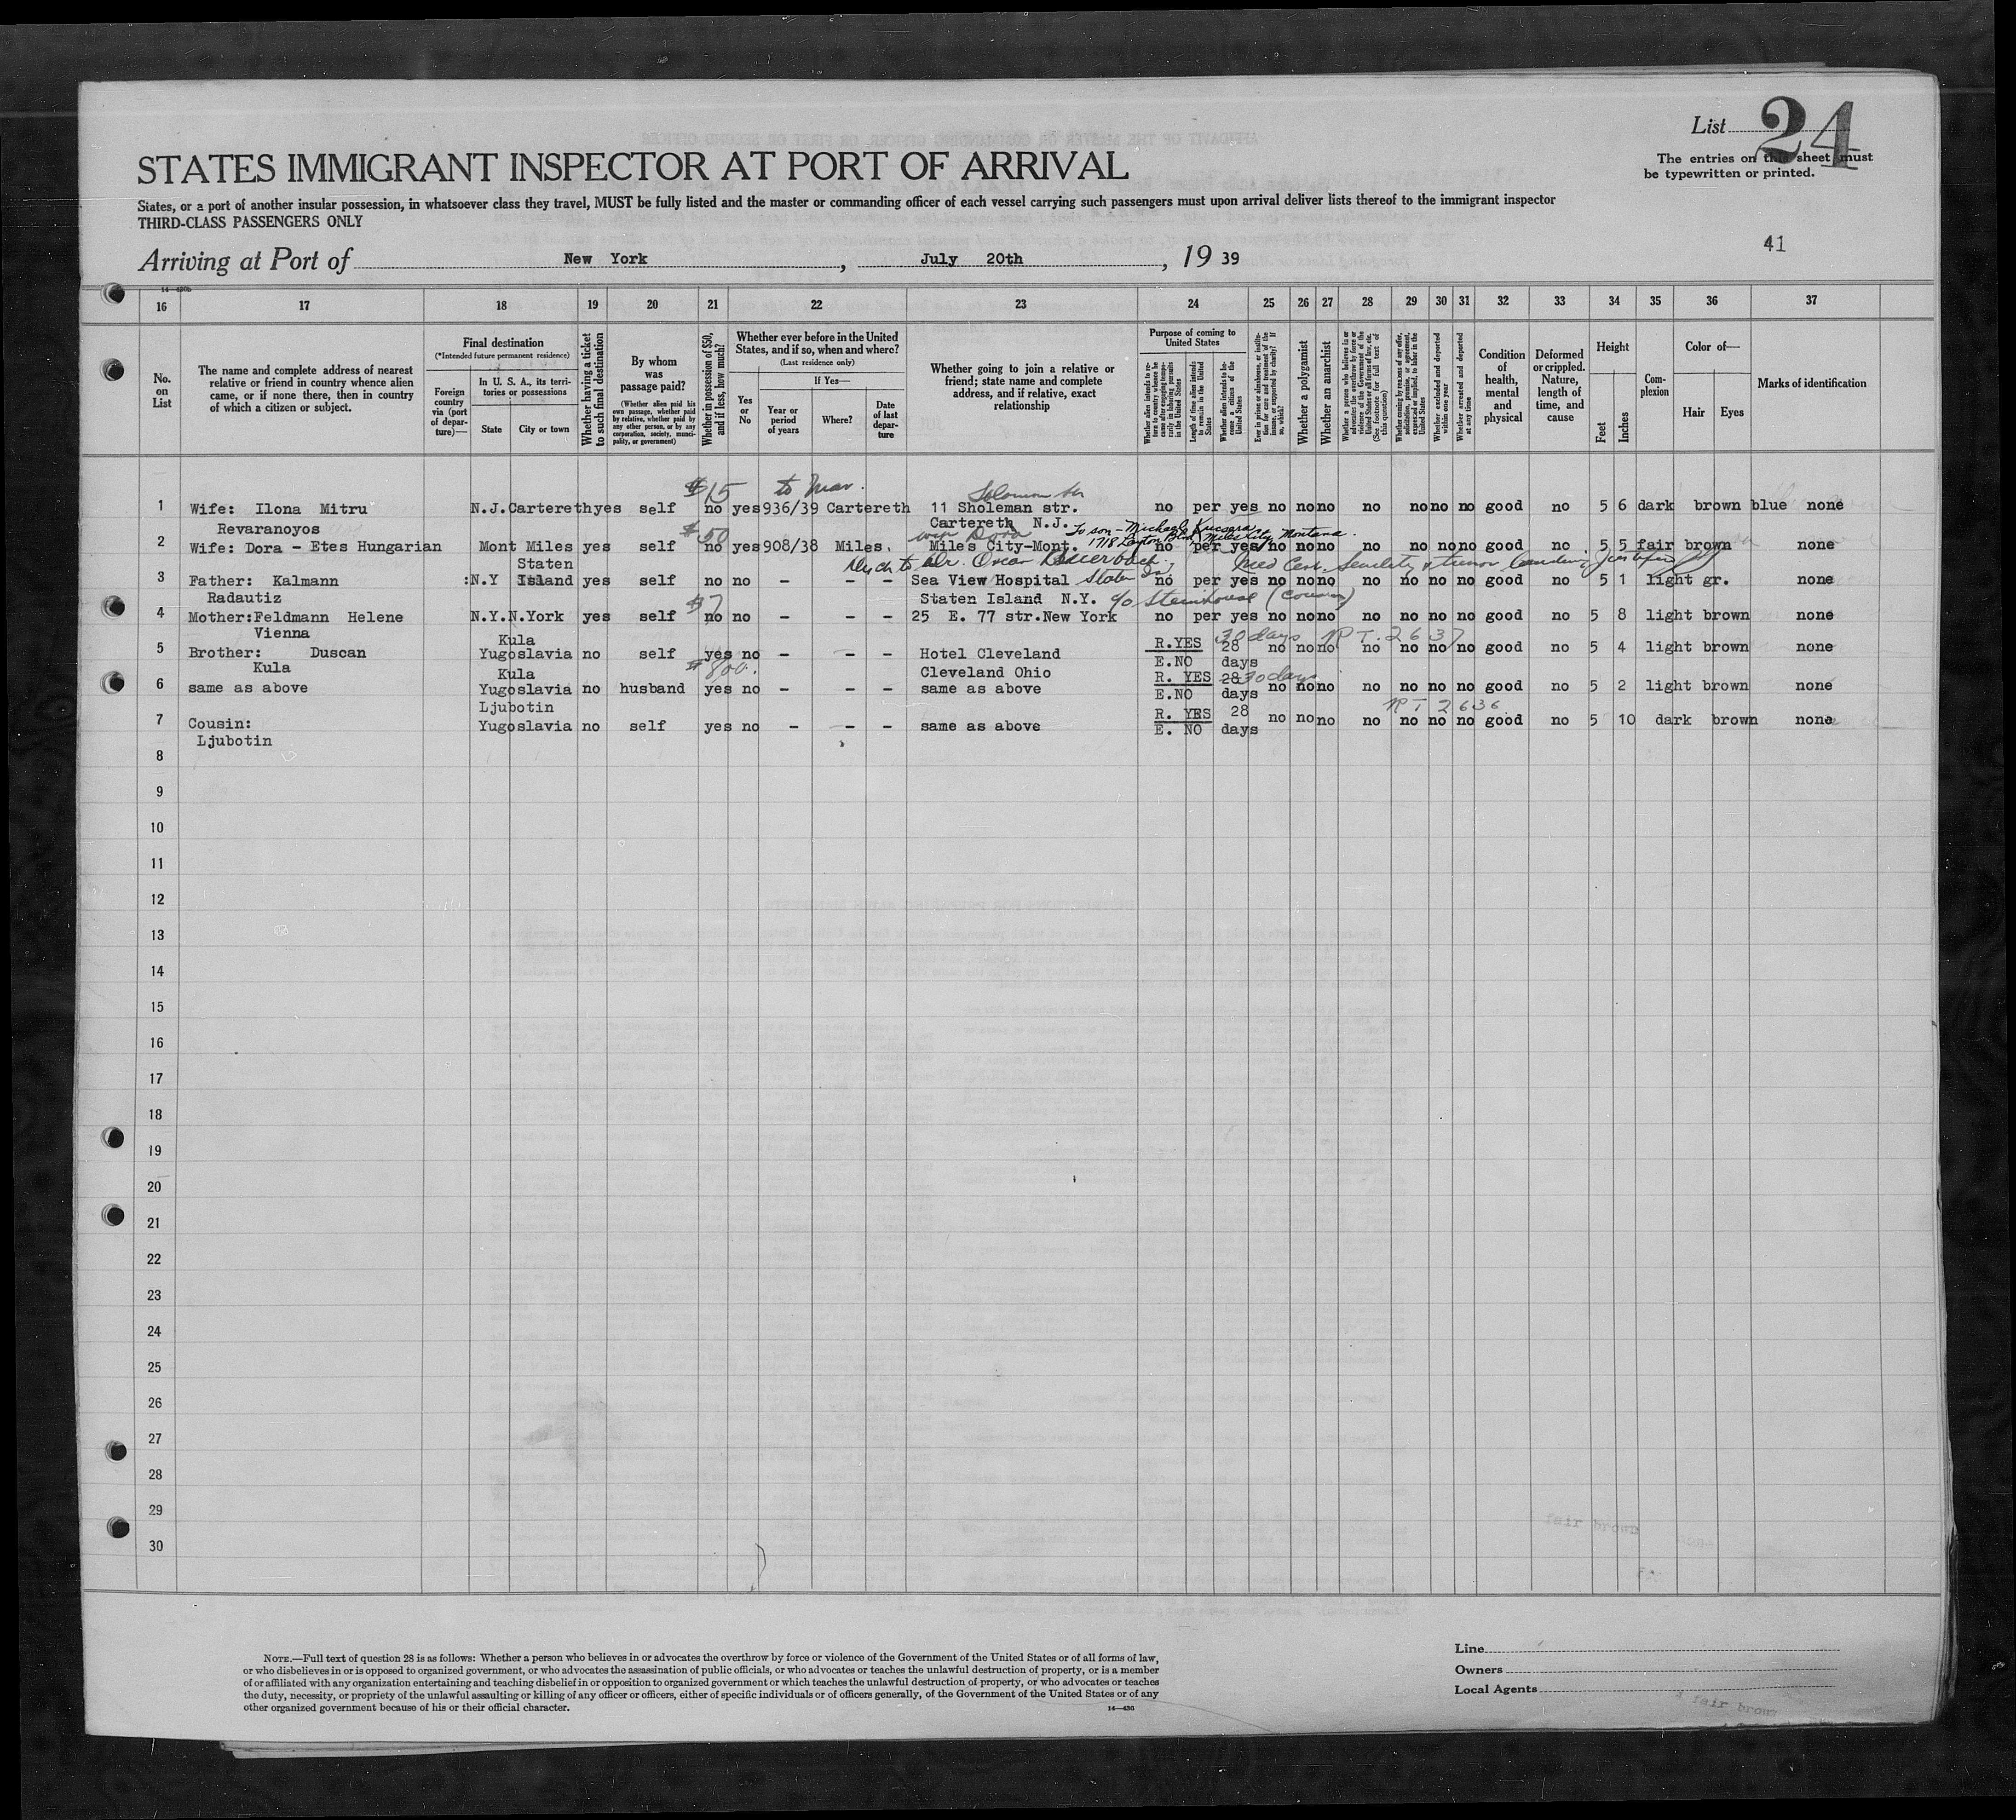 List 24
The entries on this sheet must
be typewritten or printed.
STATES IMMIGRANT INSPECTOR AT PORT OF ARRIVAL
States, or a port of another insular possession, in whatsoever class they travel, MUST be fully listed and the master or commanding officer of each vessel carrying such passengers must upon arrival deliver lists thereof to the immigrant inspector
THIRD-CLASS PASSENGERS ONLY
41
Arriving at Port of New York, July 20th, 19 39
16 17 18 19 20 21 22 23 24 25 26 27 28 29 30 31 32 33 34 35 36 37
No. on List
The name and complete address of nearest relative or friend in country whence alien came, or if none there, then in country of which a citizen or subject.
Final destination
(*Intended future permanent residence)
Foreign country via (port of departure)—
In U. S. A., its territories or possessions
State
City or town
Whether having a ticket to such final destination
By whom was passage paid?
(Whether alien paid his own passage, whether paid by relative, whether paid by any other person, or by any corporation, society, municipality, or government)
Whether in possession of $50, and if less, how much?
Whether ever before in the United States, and if so, when and where?
(Last residence only)
Yes or No
If Yes—
Year or period of years
Where?
Date of last departure
Whether going to join a relative or friend; state name and complete address, and if relative, exact relationship
Purpose of coming to United States
Whether alien intends to return to country whence he came after engaging temporarily in laboring pursuits in the United States
Length of time alien intends to remain in the United States
Whether alien intends to become a citizen of the United States
Ever in prison or almshouse, or institution for care and treatment of the insane, or supported by charity? If so, which?
Whether a polygamist
Whether an anarchist
Whether a person who believes in or advocates the overthrow by force or violence of the Government of the United States or all forms of law, etc. (See footnote for full text of this question)
Whether coming by reason of any offer, solicitation, promise, or agreement, expressed or implied, to labor in the United States
Whether excluded and deported within one year
Whether arrested and deported at any time
Condition of health, mental and physical
Deformed or crippled. Nature, length of time, and cause
Height
Feet
Inches
Complexion
Color of—
Hair
Eyes
Marks of identification
$15 to Mar. Solomon
1 Wife: Ilona Mitru N.J. Cartereth yes self no yes 936/39 Cartereth 11 Sholeman str. no per yes no no no no no no no good no 5 6 dark brown blue none
Revaranoyos Cartereth N.J.
$50 Dora To son - Michael
1718 Miles City, Montana.
2 Wife: Dora - Etes Hungarian Mont Miles yes self no yes 908/38 Miles. Miles City-Mont. no per yes no no no no no no no good no 5 5 fair brown none
Staten to Dr. Oscar
3 Father: Kalmann :N.Y Island yes self no no - - - Sea View Hospital Staten no per yes no no no no no no no good no 5 1 light gr. none
Radautiz $7 Staten Island N.Y. c/o Steinhouse (cousin)
4 Mother:Feldmann Helene N.Y. N.York yes self no no - - - 25 E. 77 str.New York no per yes no no no no no no no good no 5 8 light brown none
Vienna Kula 30 days 2637
5 Brother: Duscan Yugoslavia no self yes no - - - Hotel Cleveland R.YES 28 no no no no no no no good no 5 4 light brown none
Kula Kula $800. Cleveland Ohio E.NO days
6 same as above Yugoslavia no husband yes no - - - same as above R. YES 28 30 days no no no no no no no good no 5 2 light brown none
E.NO days
Ljubotin 2636
7 Cousin: Yugoslavia no self yes no - - - same as above R. YES 28 no no no no no no no good no 5 10 dark brown none
Ljubotin E. NO days
8
9
10
11
12
13
14
15
16
17
18
19
20
21
22
23
24
25
26
27
28
29
30
fair brown
NOTE.—Full text of question 28 is as follows: Whether a person who believes in or advocates the overthrow by force or violence of the Government of the United States or of all forms of law,
or who disbelieves in or is opposed to organized government, or who advocates the assassination of public officials, or who advocates or teaches the unlawful destruction of property, or is a member
of or affiliated with any organization entertaining and teaching disbelief in or opposition to organized government or which teaches the unlawful destruction of property, or who advocates or teaches
the duty, necessity, or propriety of the unlawful assaulting or killing of any officer or officers, either of specific individuals or of officers generally, of the Government of the United States or of any
other organized government because of his or their official character.
14—436
Line
Owners
Local Agents
fair brown